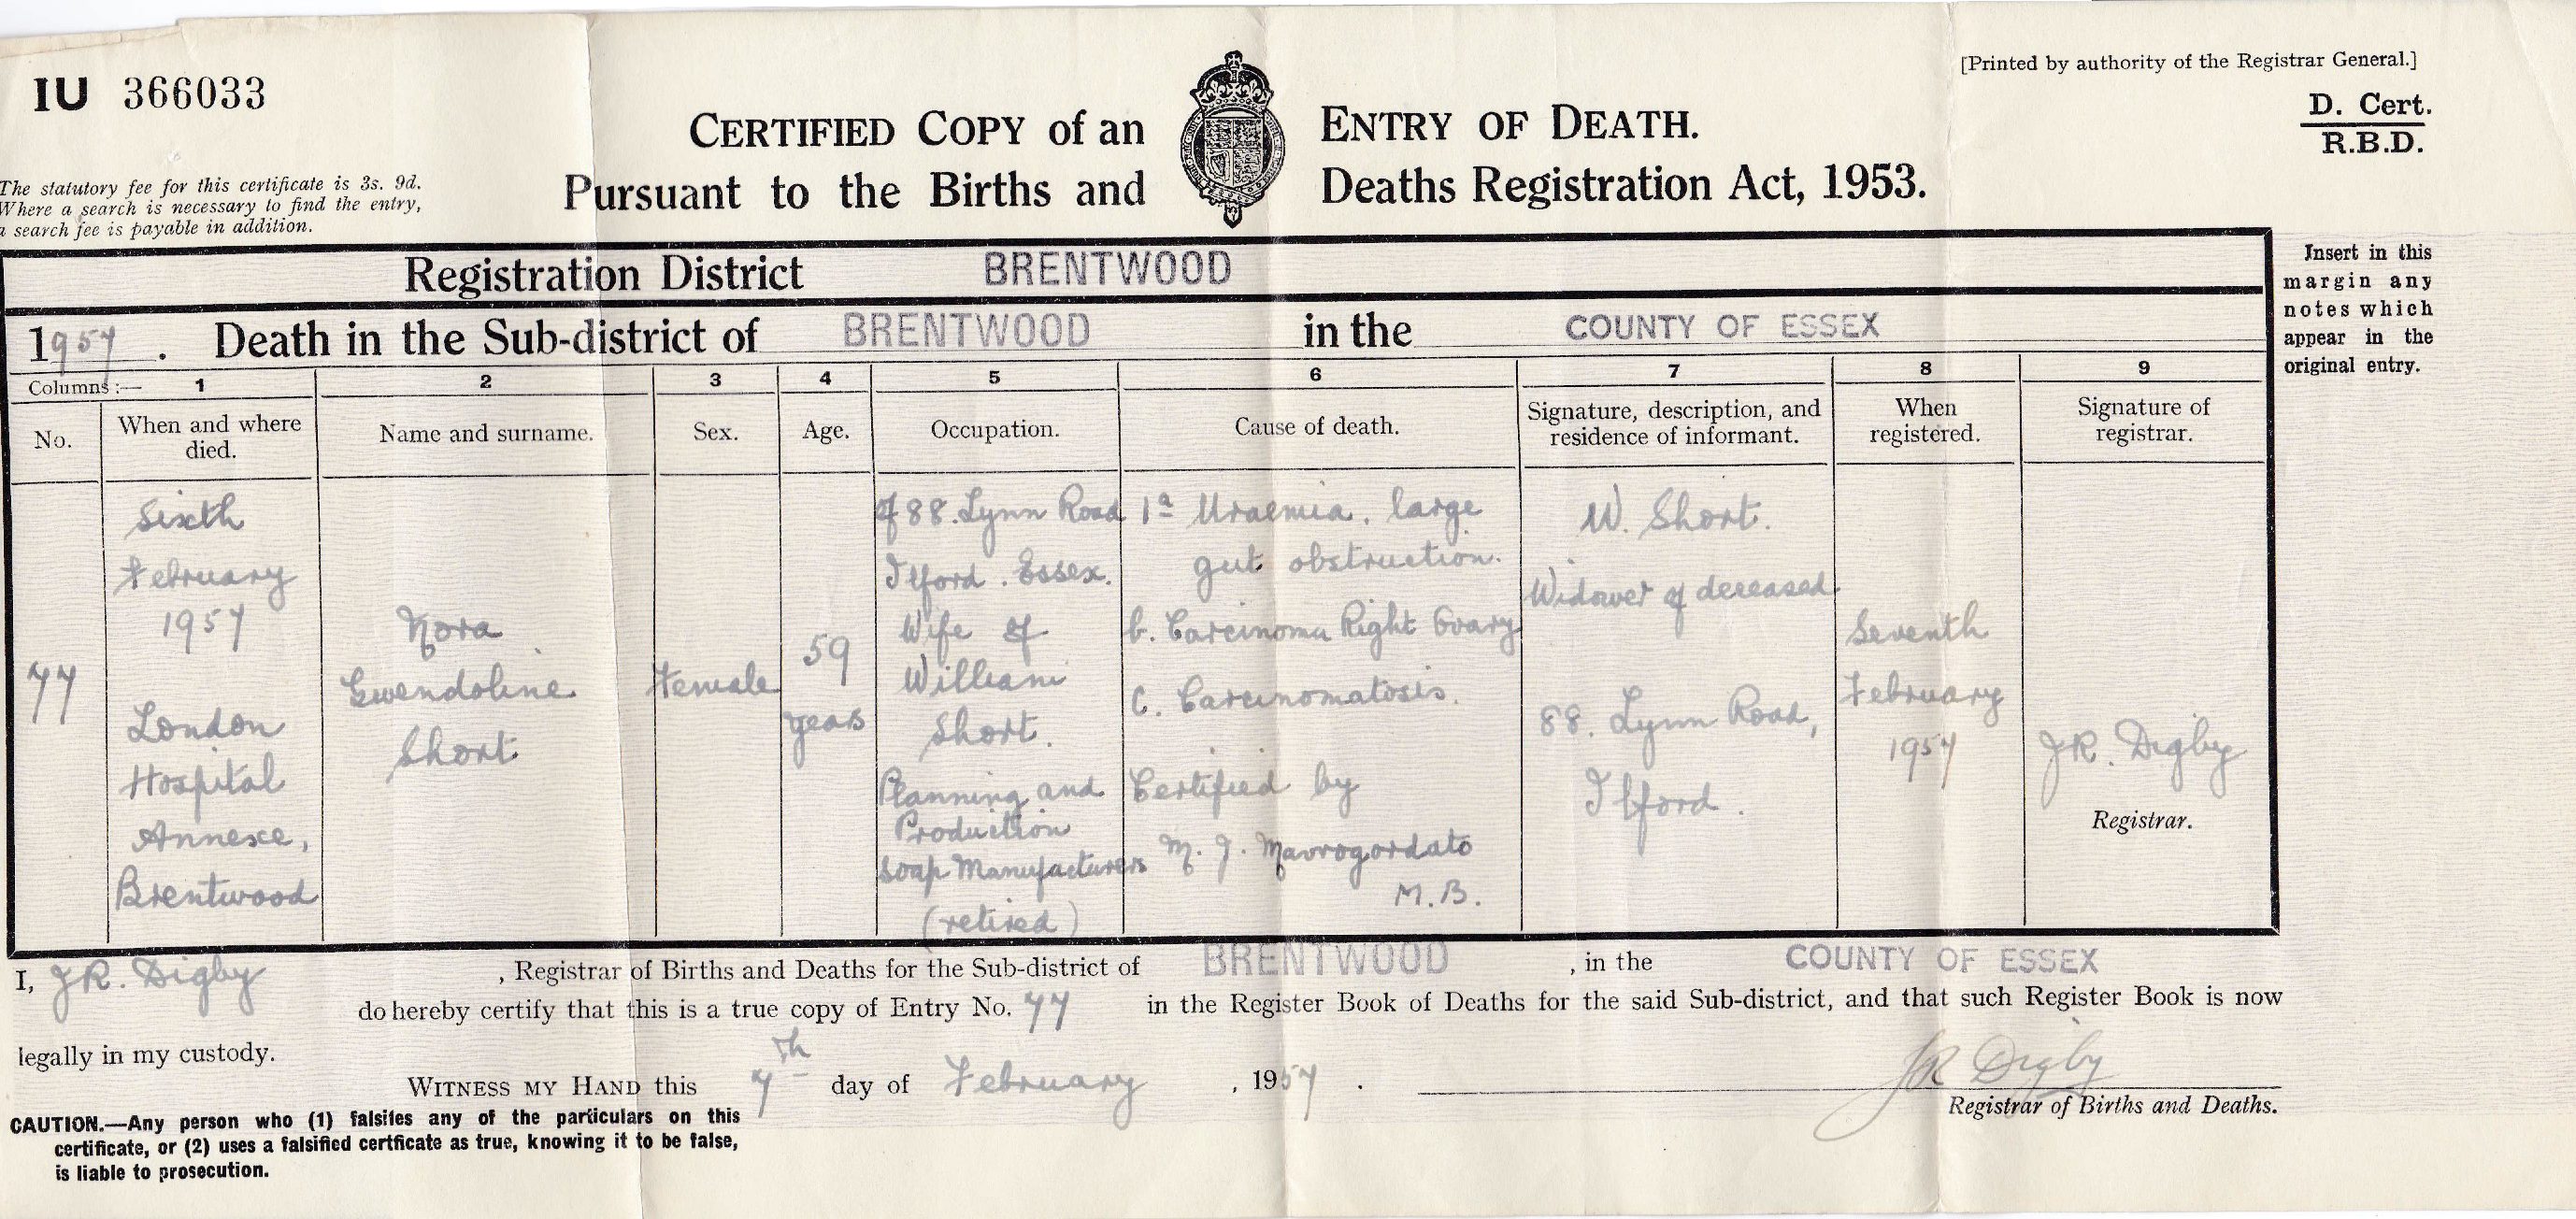 IU 366033
[Printed by authority of the Registrar General.]
D. Cert.
R.B.D.
CERTIFIED COPY of an ENTRY OF DEATH.
Pursuant to the Births and Deaths Registration Act, 1953.
The statutory fee for this certificate is 3s. 9d.
Where a search is necessary to find the entry,
a search fee is payable in addition.
Registration District BRENTWOOD
1957. Death in the Sub-district of BRENTWOOD in the COUNTY OF ESSEX
Insert in this
margin any
notes which
appear in the
original entry.
Columns :— 1 2 3 4 5 6 7 8 9
No.
When and where
died.
Name and surname.
Sex.
Age.
Occupation.
Cause of death.
Signature, description, and
residence of informant.
When
registered.
Signature of
registrar.
77
Sixth
February
1957
London
Hospital
Annexe,
Brentwood
Nora
Gwendoline
Short
Female
59
years
of 88. Lynn Road
Ilford. Essex.
Wife of
William
Short.
Planning and
Production
Soap Manufacturers
(retired)
1a Uraemia. large
gut obstruction.
b. Carcinoma Right Ovary
c. Carcinomatosis.
Certified by
M. J. Mavrogordato
M.B.
W. Short.
Widower of deceased
88. Lynn Road,
Ilford.
Seventh
February
1957
JR. Digby
Registrar.
I, JR. Digby, Registrar of Births and Deaths for the Sub-district of BRENTWOOD, in the COUNTY OF ESSEX
do hereby certify that this is a true copy of Entry No. 77 in the Register Book of Deaths for the said Sub-district, and that such Register Book is now
legally in my custody.
WITNESS MY HAND this 7th day of February, 1957.
JR Digby
Registrar of Births and Deaths.
CAUTION.—Any person who (1) falsifies any of the particulars on this
certificate, or (2) uses a falsified certficate as true, knowing it to be false,
is liable to prosecution.